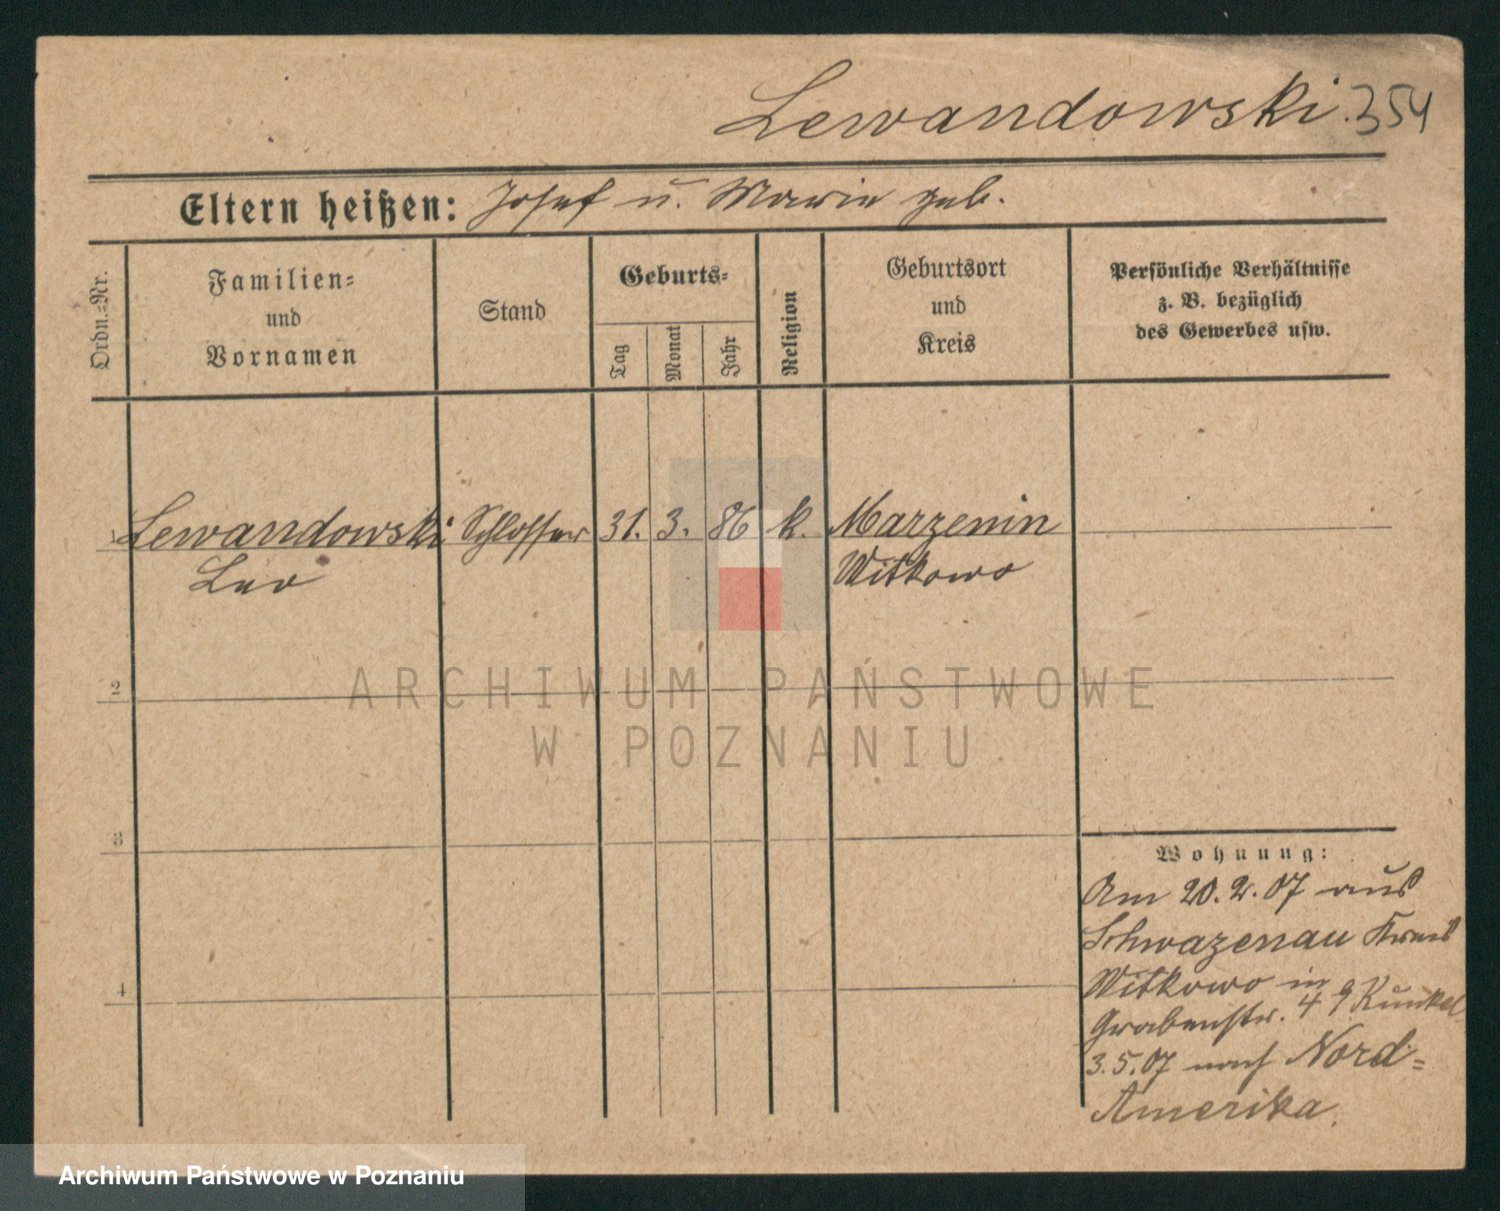 Lewandowski. 354
Eltern heißen: Josef u. Marie geb.
Ordn.-Nr.
Familien-
und
Vornamen
Stand
Geburts-
Tag
Monat
Jahr
Religion
Geburtsort
und
Kreis
Persönliche Verhältnisse
z. B. bezüglich
des Gewerbes usw.
1 Lewandowski Schlosser 31. 3. 86 k. Marzenin
Leo Witkowo
2
ARCHIWUM PAŃSTWOWE
W POZNANIU
3
Wohnung:
Am 20.2.07 aus
Schwazenau Kreis
Witkowo in
Grabenstr. 4 Kunkel
3.5.07 nach Nord-
Amerika.
4
Archiwum Państwowe w Poznaniu